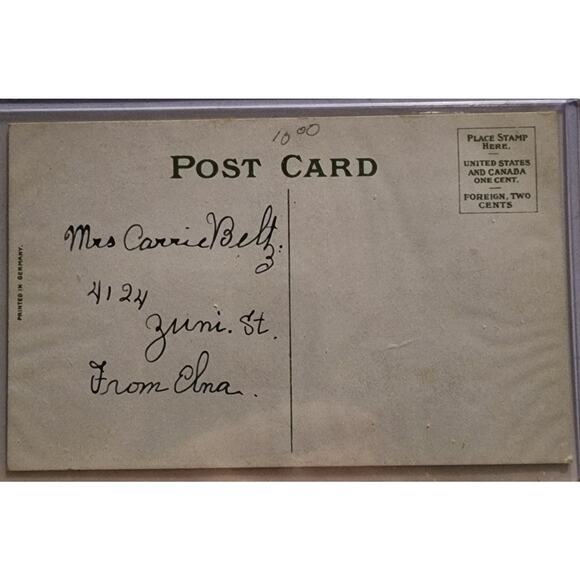 10.00
POST CARD
PLACE STAMP
HERE.
UNITED STATES
AND CANADA
ONE CENT.
FOREIGN, TWO
CENTS
PRINTED IN GERMANY.
Mrs Carrie Beltz.
4124
Zuni. St.
From Elna.